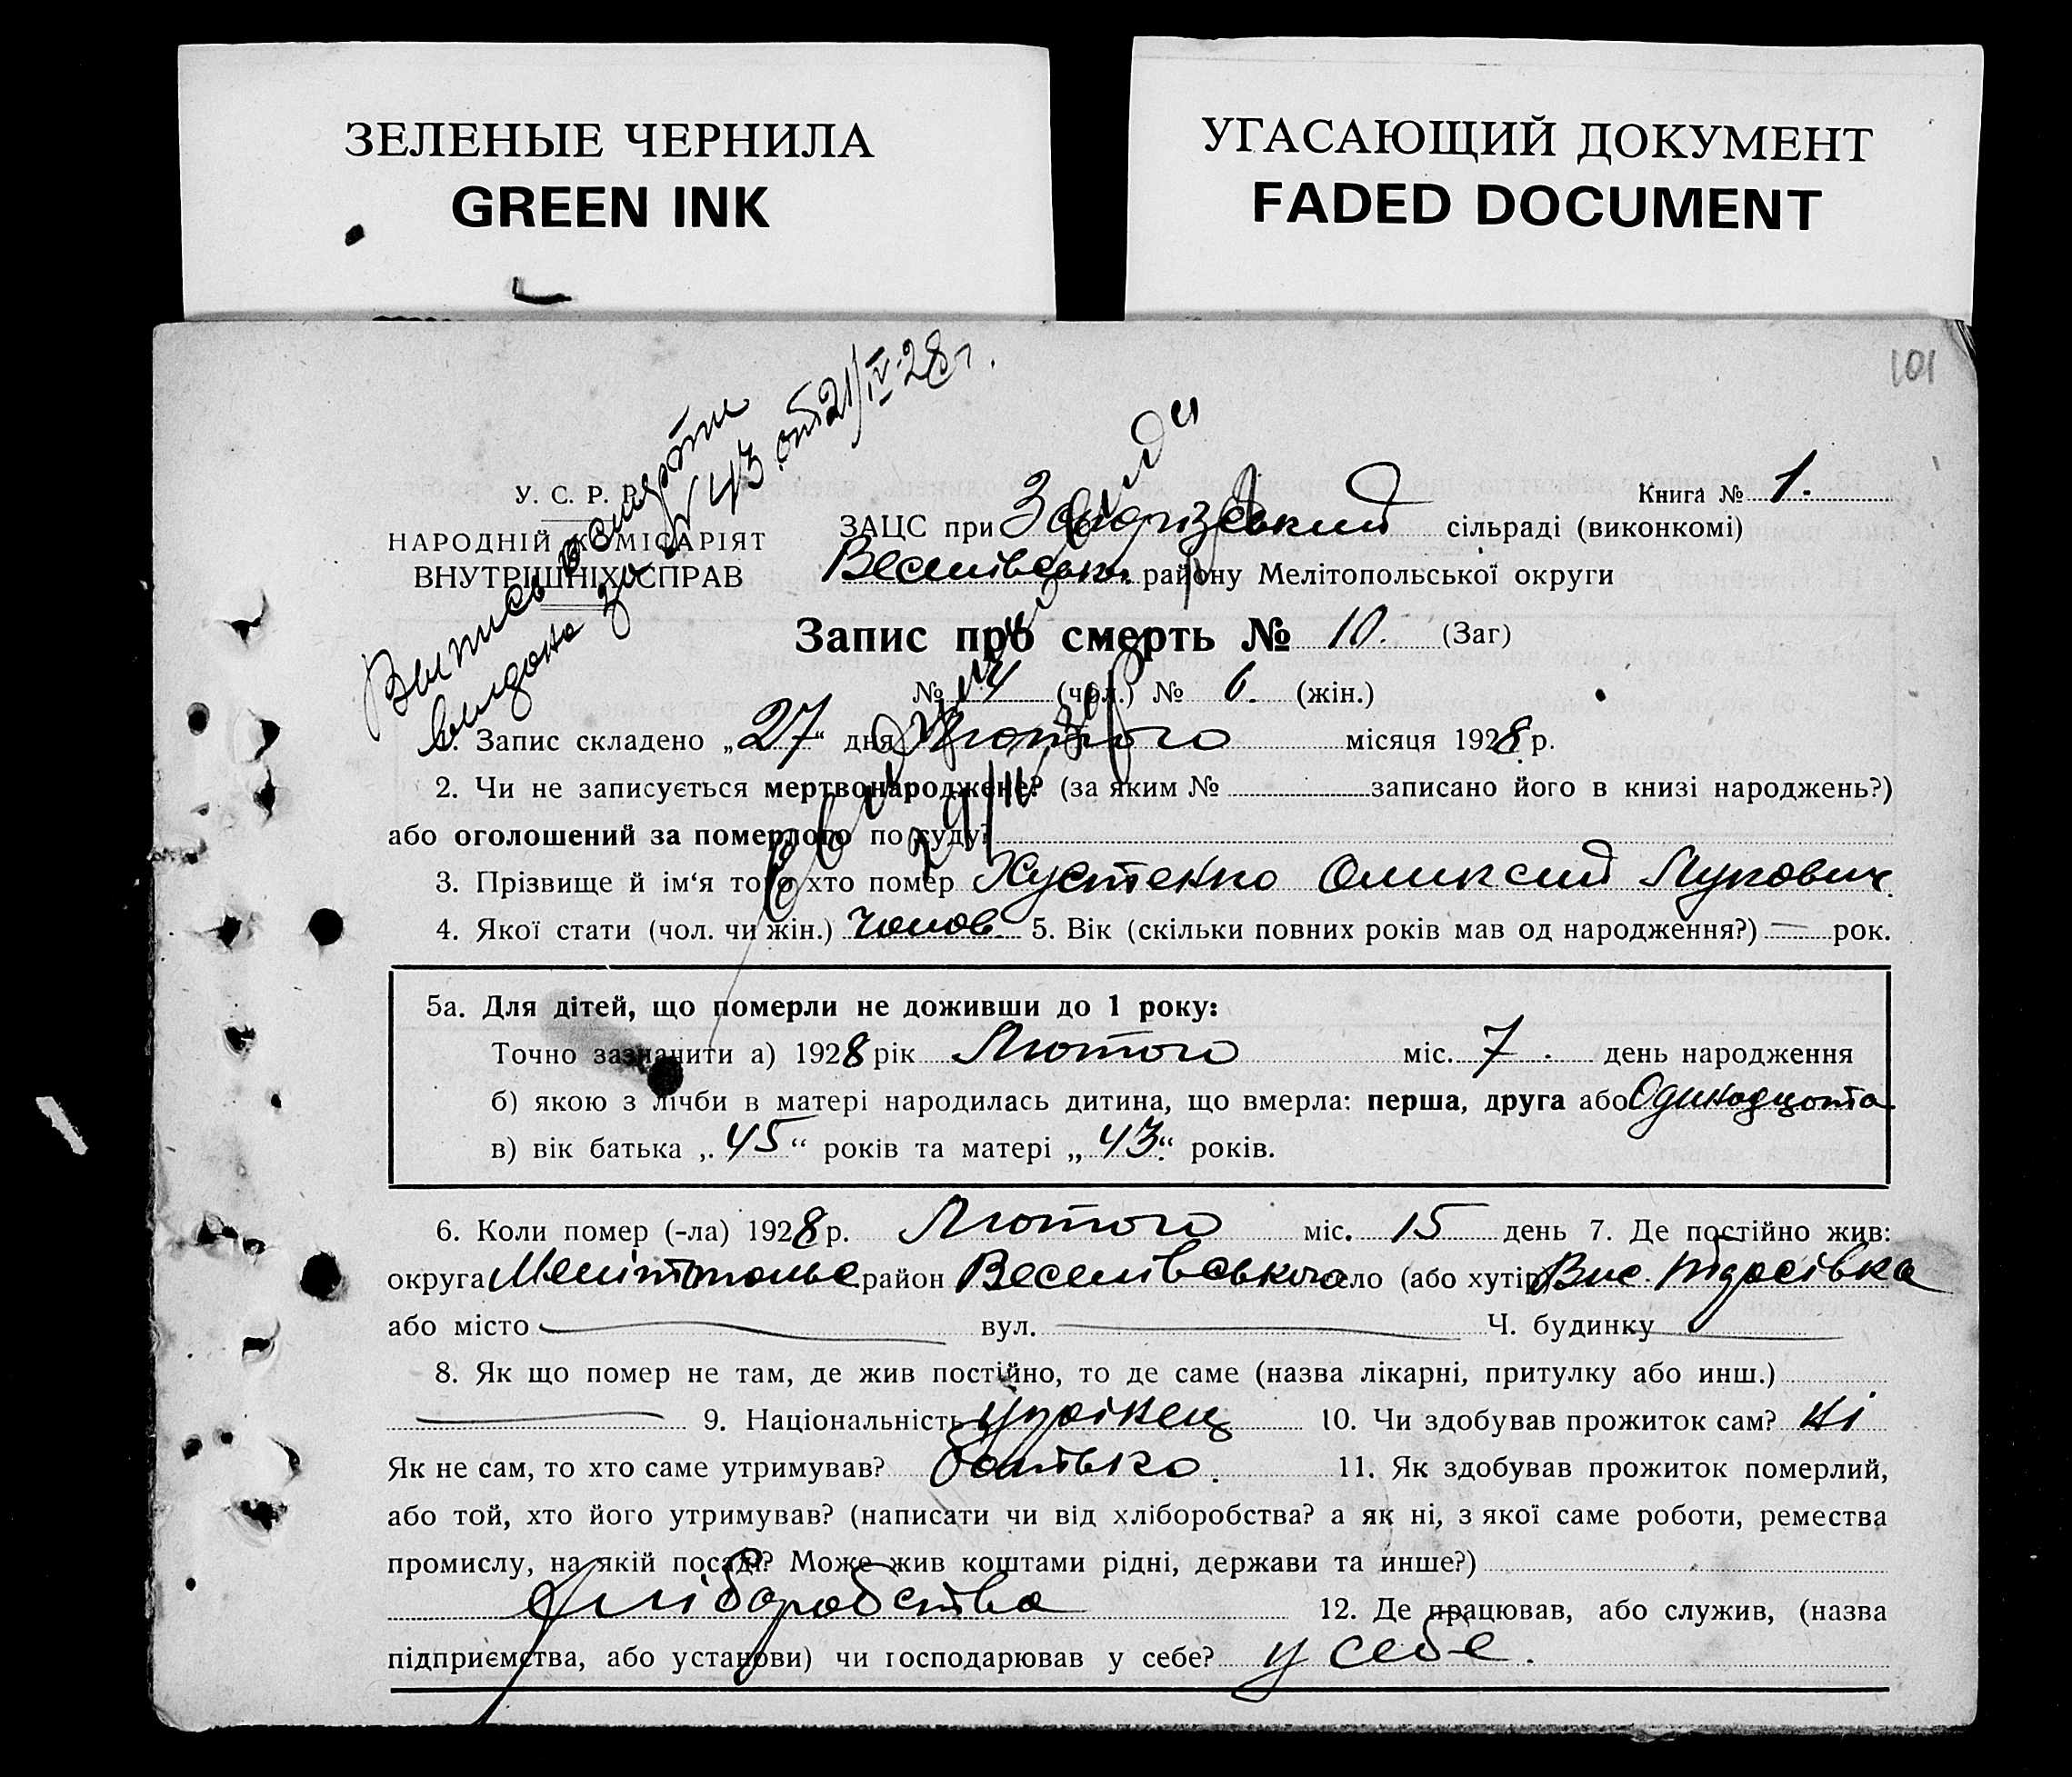 ЗЕЛЕНЫЕ ЧЕРНИЛА
GREEN INK
УГАСАЮЩИЙ ДОКУМЕНТ
FADED DOCUMENT
101
Выпись о смерти
выдана за № 43 от 21/IV-28 г.
У. С. Р. Р.
НАРОДНІЙ КОМІСАРІЯТ
ВНУТРІШНІХ СПРАВ
Книга № 1.
ЗАЦС при сільраді (виконкомі)
Веселівськ. району Мелітопольської округи
Запис про смерть № 10. (Заг)
№ 4 (чол.) № 6. (жін.)
1. Запис складено „27“ дня Лютого місяця 1928 р.
2. Чи не записується мертвонароджене? (за яким № записано його в книзі народжень?)
або оголошений за померлого по суду?
3. Прізвище й ім‘я того хто помер Хустенко Оликсий Лукович.
4. Якої стати (чол. чи жін.) Чолов. 5. Вік (скільки повних років мав од народження?) — рок.
5а. Для дітей, що померли не доживши до 1 року:
Точно зазначити а) 1928 рік Лютого міс. 7. день народження
б) якою з лічби в матері народилась дитина, що вмерла: перша, друга або Одинадцята
в) вік батька „45“ років та матері „43“ років.
6. Коли помер (-ла) 1928 р. Лютого міс. 15 день 7. Де постійно жив:
округа район Веселівського село (або хутір) Вис.
або місто вул. Ч. будинку
8. Як що помер не там, де жив постійно, то де саме (назва лікарні, притулку або инш.)
9. Національність 10. Чи здобував прожиток сам? Ні
Як не сам, то хто саме утримував? батько. 11. Як здобував прожиток померлий,
або той, хто його утримував? (написати чи від хліборобства? а як ні, з якої саме роботи, ремества
промислу, на якій посаді? Може жив коштами рідні, держави та инше?)
Хліборобство 12. Де працював, або служив, (назва
підприємства, або установи) чи господарював у себе? у себе.